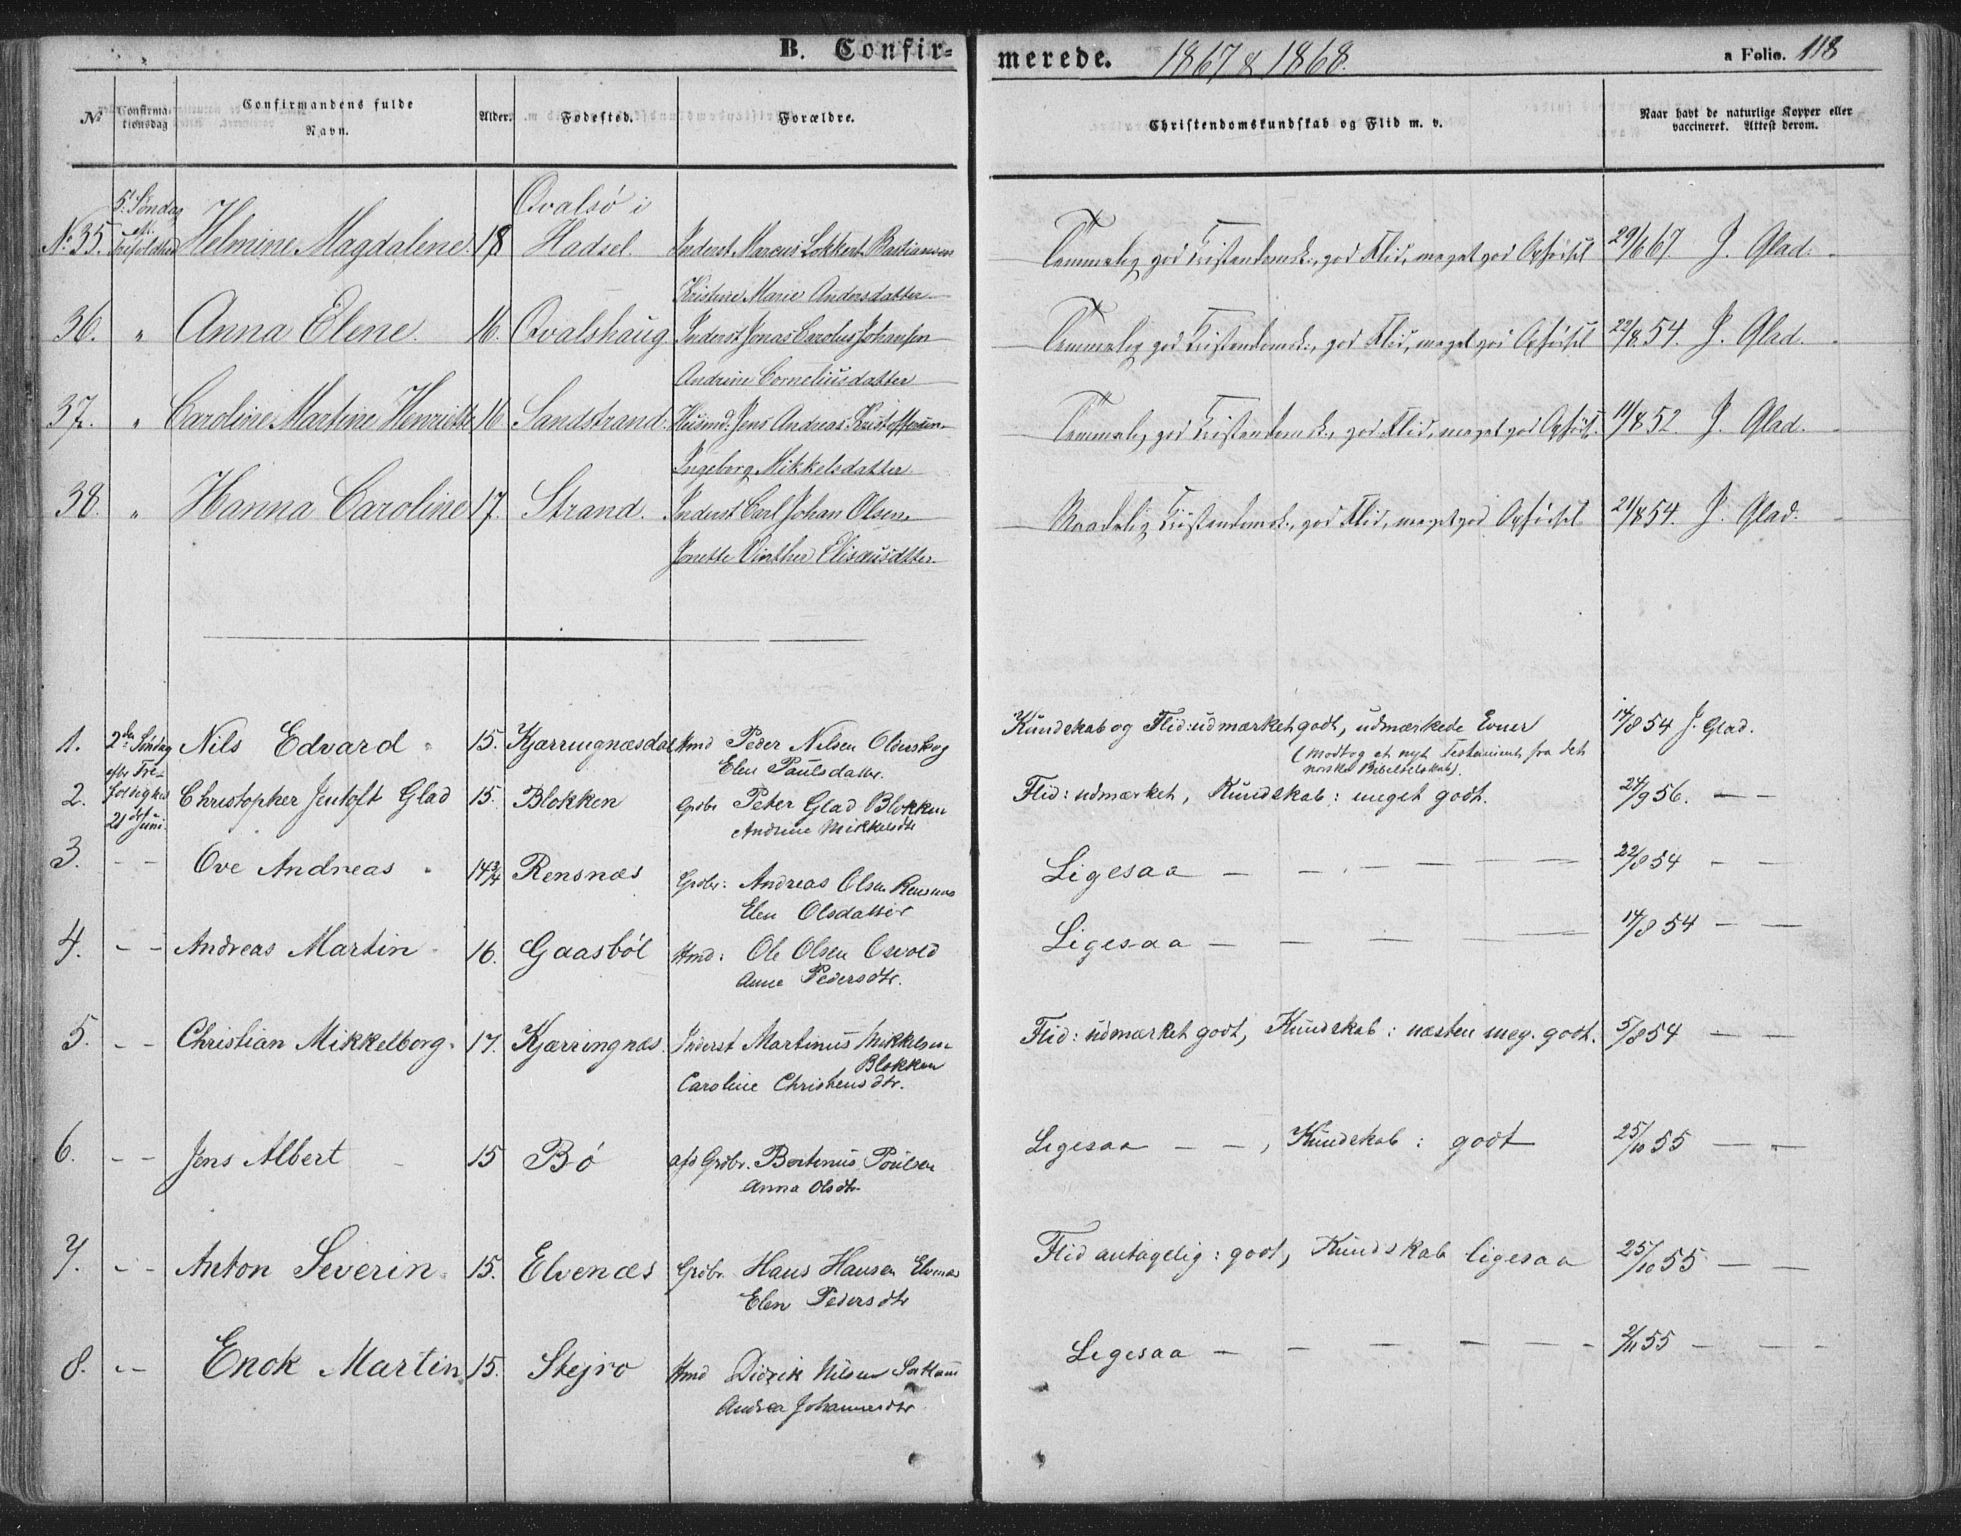 B. Confirmerede. 1867 & 1868. a Folio. 118
№ Confirmationsdag Confirmandens fulde Navn. Alder. Fødested. Forældre. Christendomskundskab og Flid m. v. Naar havt de naturlige Kopper eller vaccineret. Attest derom.
No 35. 5te Søndag eft. Trefoldhed Helmine Magdalene 18 Qvalsö i Hadsel. Inderst Marcus Lokkert Bastiansen Temmelig god Kristendomsk., god Flid, meget god Opførsel 29/6 67. J. Glad.
Kristine Marie Andersdatter
36. " Anna Elene. 16. Qvalshaug Inderst Jonas Carolus Johansen Temmelig god Kristendomsk., god Flid, meget god Opførsel 22/8 54. J. Glad.
Andrine Corneliusdatter
37. " Caroline Martine Henriette 16. Sandstrand. Husmd. Jens Andreas Kristoffersen Temmelig god Kristendomsk., god Flid, meget god Opførs. 14/8 52. J. Glad.
Ingeborg Mikkelsdatter
38. " Hanna Caroline 17. Strand. Inderst Carl Johan Olsen Maadelig Kristendomsk., god Flid, meget god Opførsel 21/8 54. J. Glad.
Jonette Vinther Elisæusdatter.
1. 2den Søndag Nils Edvard 15. Kjærringnæsdal Hmd Peder Nilsen Olderskog Kundskab og Flid: udmærket godt, udmærkede Evner 14/8 54 J. Glad.
Elen Paulsdatter. (Modtog et nyt Testament fra det norske Bibelselskab).
2. efter Trefoldighed 21de Juni. Christopher Jentoft Glad 15. Blokken Grdbr Peter Glad Blokken Flid: udmærket, Kundskab: meget godt. 24/9 56. — —
Andrine Mikkelsdtr
3. — — Ove Andreas 14 3/4 Rensnæs Grdbr: Andreas Olsen Rensnæs Ligesaa — — — — 22/8 54 — —
Elen Olsdatter
4. — — Andreas Martin 16. Gaasböl Hmd: Ole Olsen Osvold Ligesaa — — — — 14/8 54 — —
Anne Pedersdtr.
5. — — Christian Mikkelborg. 17. Kjærringnæs. Inderst Martinus Mikkelsen Blokken Flid: udmærket godt, Kundskab: næsten meg. godt. 5/8 54 — —
Caroline Christensdtr.
6. — — Jens Albert 15 Bö afd Grdbr. Bertinus Poulsen Ligesaa — —, Kundskab: godt 25/10 55 — —
Anna Olsdtr
7. — — Anton Severin 15. Elvenæs Grdbr Hans Hansen Elvenæs Flid antagelig: godt, Kundskab ligesaa 25/10 55 — —
Elen Pedersdtr
8. — — Enok Martin 15. Stejro Hmd Didrik Nilsen Ligesaa — — — — — 2/11 55 — — —
Andrea Johannesdtr